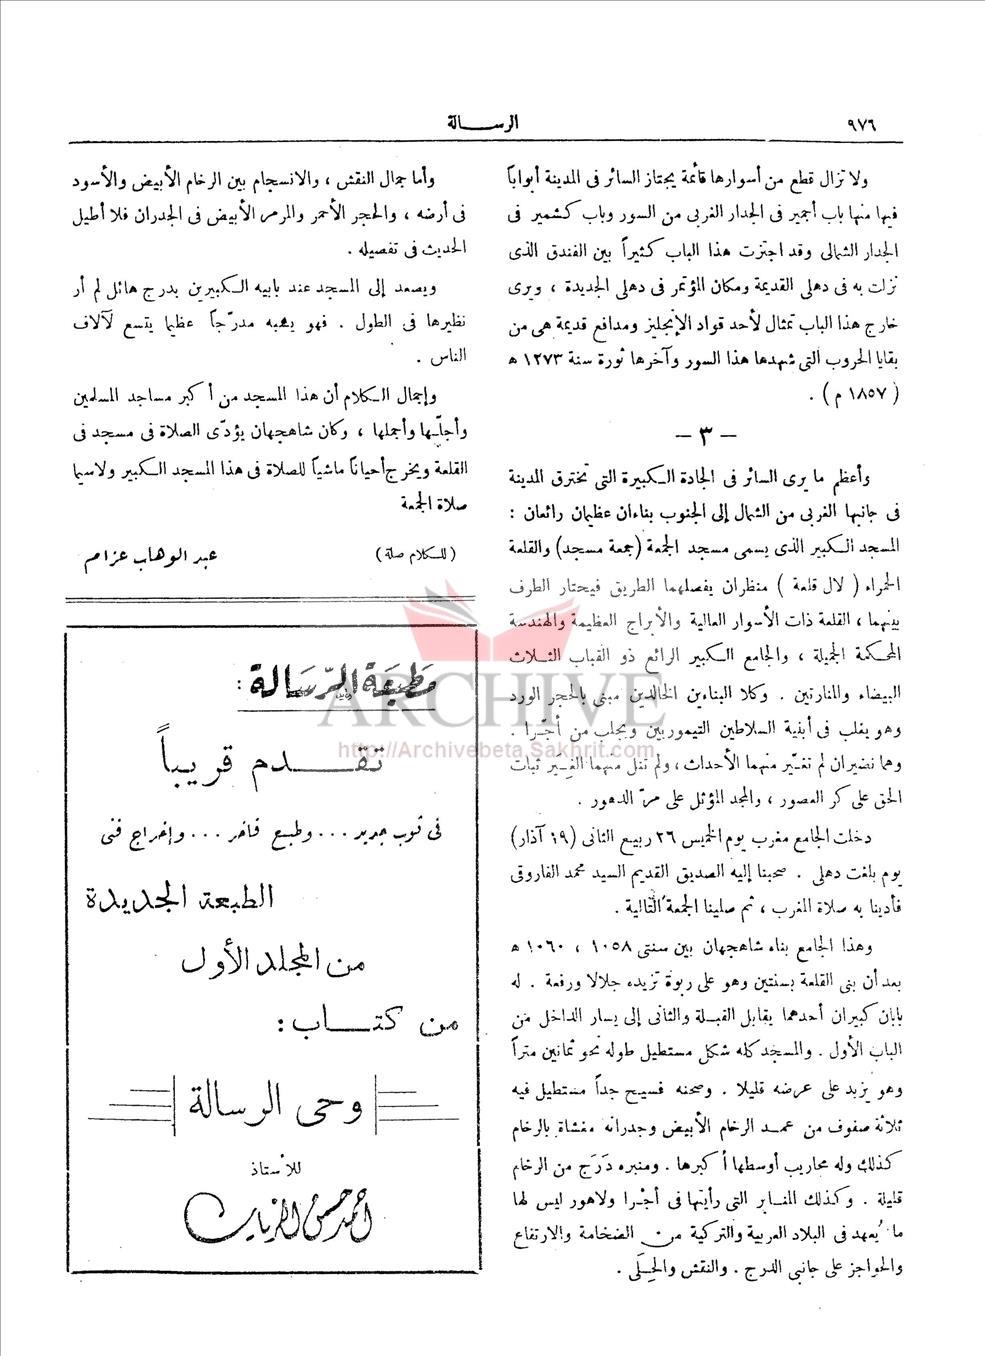 ٩٧٦
الرســـالة
ولا تزال قطع من أسوارها قائمة يجتاز السائر فى المدينة أبواباً
فيها منها باب أجمير فى الجدار الغربى من السور وباب كشمير فى
الجدار الشمالى وقد اجتزت هذا الباب كثيراً بين الفندق الذى
نزلت به فى دهلى القديمة ومكان المؤتمر فى دهلى الجديدة ، ويرى
خارج هذا الباب تمثال لأحد قواد الإنجليز ومدافع قديمة هى من
بقايا الحروب التى شهدها هذا السور وآخرها ثورة سنة ١٢٧٣ ه
( ١٨٥٧ م ) .
— ٣ —
وأعظم ما يرى السائر فى الجادة الكبيرة التى تخترق المدينة
فى جانبها الغربى من الشمال إلى الجنوب بناءان عظيمان رائعان :
المسجد الكبير الذى يسمى مسجد الجمعة (جمعة مسجد) والقلعة
الحمراء ( لال قلعة ) منظران يفصلهما الطريق فيحتار الطرف
بينهما ، القلعة ذات الأسوار العالية والأبراج العظيمة والهندسة
المحكمة الجميلة ، والجامع الكبير الرائع ذو القباب الثلاث
البيضاء والمنارتين . وكلا البناءين الخالدين مبنى بالحجر الورد
وهو يغلب فى أبنية السلاطين التيموريين ويجلب من أجّرا .
وهما نضيران لم تغيّر منهما الأحداث ، ولم تنل منهما الغِيَر ثبات
الحق على كر العصور ، والمجد المؤثل على مرّ الدهور .
دخلت الجامع مغرب يوم الخميس ٢٦ ربيع الثانى (١٩ آذار)
يوم بلغت دهلى . صحبنا إليه الصديق القديم السيد محمد الفاروقى
فأدينا به صلاة المغرب ، ثم صلينا الجمعة التالية .
وهذا الجامع بناه شاهجهان بين سنتى ١٠٥٨ ، ١٠٦٠ ه
بعد أن بنى القلعة بسنتين وهو على ربوة تزيده جلالا ورفعة . له
بابان كبيران أحدهما يقابل القبلة والثانى إلى يسار الداخل من
الباب الأول . والمسجد كله شكل مستطيل طوله نحو ثمانين متراً
وهو يزيد على عرضه قليلا . وصحنه فسيح جداً مستطيل فيه
ثلاثة صفوف من عمد الرخام الأبيض وجدرانه مغشاة بالرخام
كذلك وله محاريب أوسطها أكبرها . ومنبره دَرَج من الرخام
قليلة . وكذلك المنابر التى رأيتها فى أجْرا ولاهور ليس لها
ما يُعهد فى البلاد العربية والتركية من الضخامة والارتفاع
والحواجز على جانبى الدرج . والنقش والحِلَى .
وأما جمال النقش ، والانسجام بين الرخام الأبيض والأسود
فى أرضه ، والحجر الأحمر والمرمر الأبيض فى الجدران فلا أطيل
الحديث فى تفصيله .
ويصعد إلى المسجد عند بابيه الكبيرين بدرج هائل لم أر
نظيرها فى الطول . فهو يشبه مدرّجاً عظيما يتسع لآلاف
الناس .
وإجمال الكلام أن هذا المسجد من أكبر مساجد المسلمين
وأجلّها وأجملها ، وكان شاهجهان يؤدّى الصلاة فى مسجد فى
القلعة ويخرج أحياناً ماشياً للصلاة فى هذا المسجد الكبير ولاسيما
صلاة الجمعة
(للكلام صلة)
عبد الوهاب عزام
مَطبَعَة الرِّسَالة :
تقـــدم قريباً
فى ثوب جديد ... وطبع فاخر ... وإخراج فنى
الطبعة الجديدة
من المجلد الأول
من كتـــاب :
وحى الرسالة
للأستاذ
أحمد حسن الزيات
ARCHIVE
http://Archivebeta.Sakhrit.com